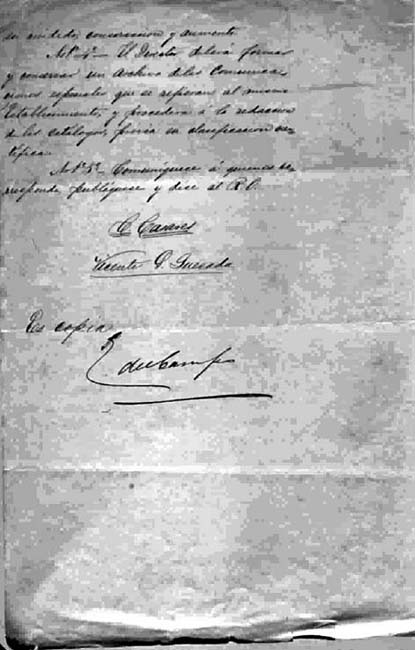 su cuidado, conservacion y aumento.
Art. 4º— El Director deberá formar
y conservar un archivo de las Comunica-
ciones especiales que se refieran al mismo
Establecimiento, y procederá á la redaccion
de los catálogos, prévia su clasificacion cen-
tífica.
Art. 5º— Comuníquese á quienes co-
rresponde publíquese y dése al R. O.
C. Casares
Vicente G. Quesada
Es copia